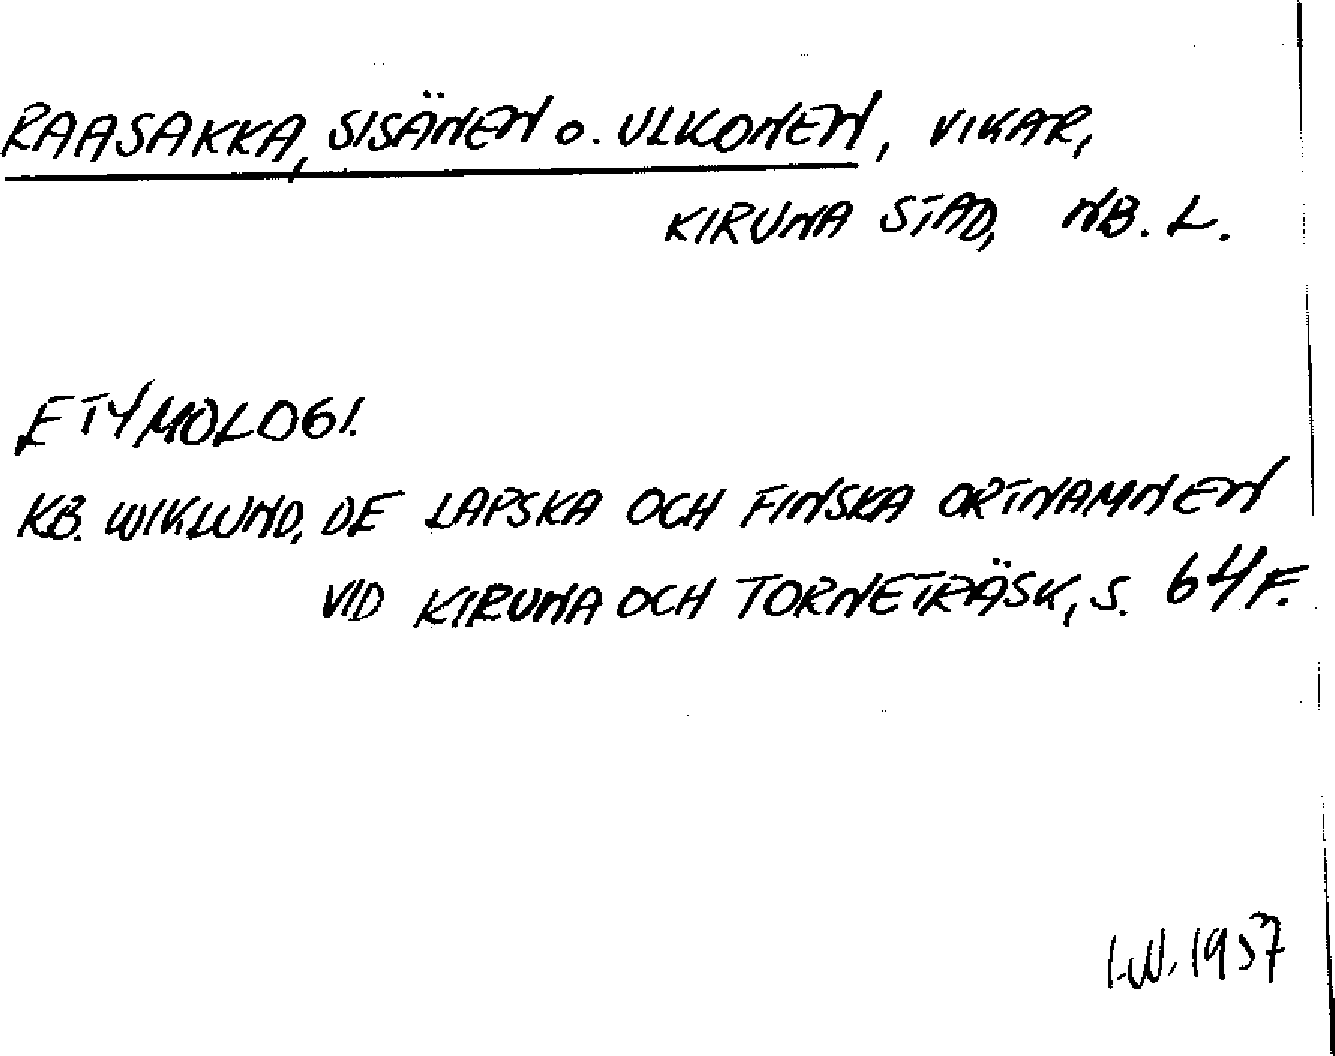 RAASAKKA, SISÄNEN O. ULKONEN, VIKAR,
KIRUNA STAD, NB. L.
ETYMOLOGI.
KB. WIKLUND, DE LAPSKA OCH FINSKA ORTNAMNEN
VID KIRUNA OCH TORNETRÄSK, S. 64F.
I.W. 1957